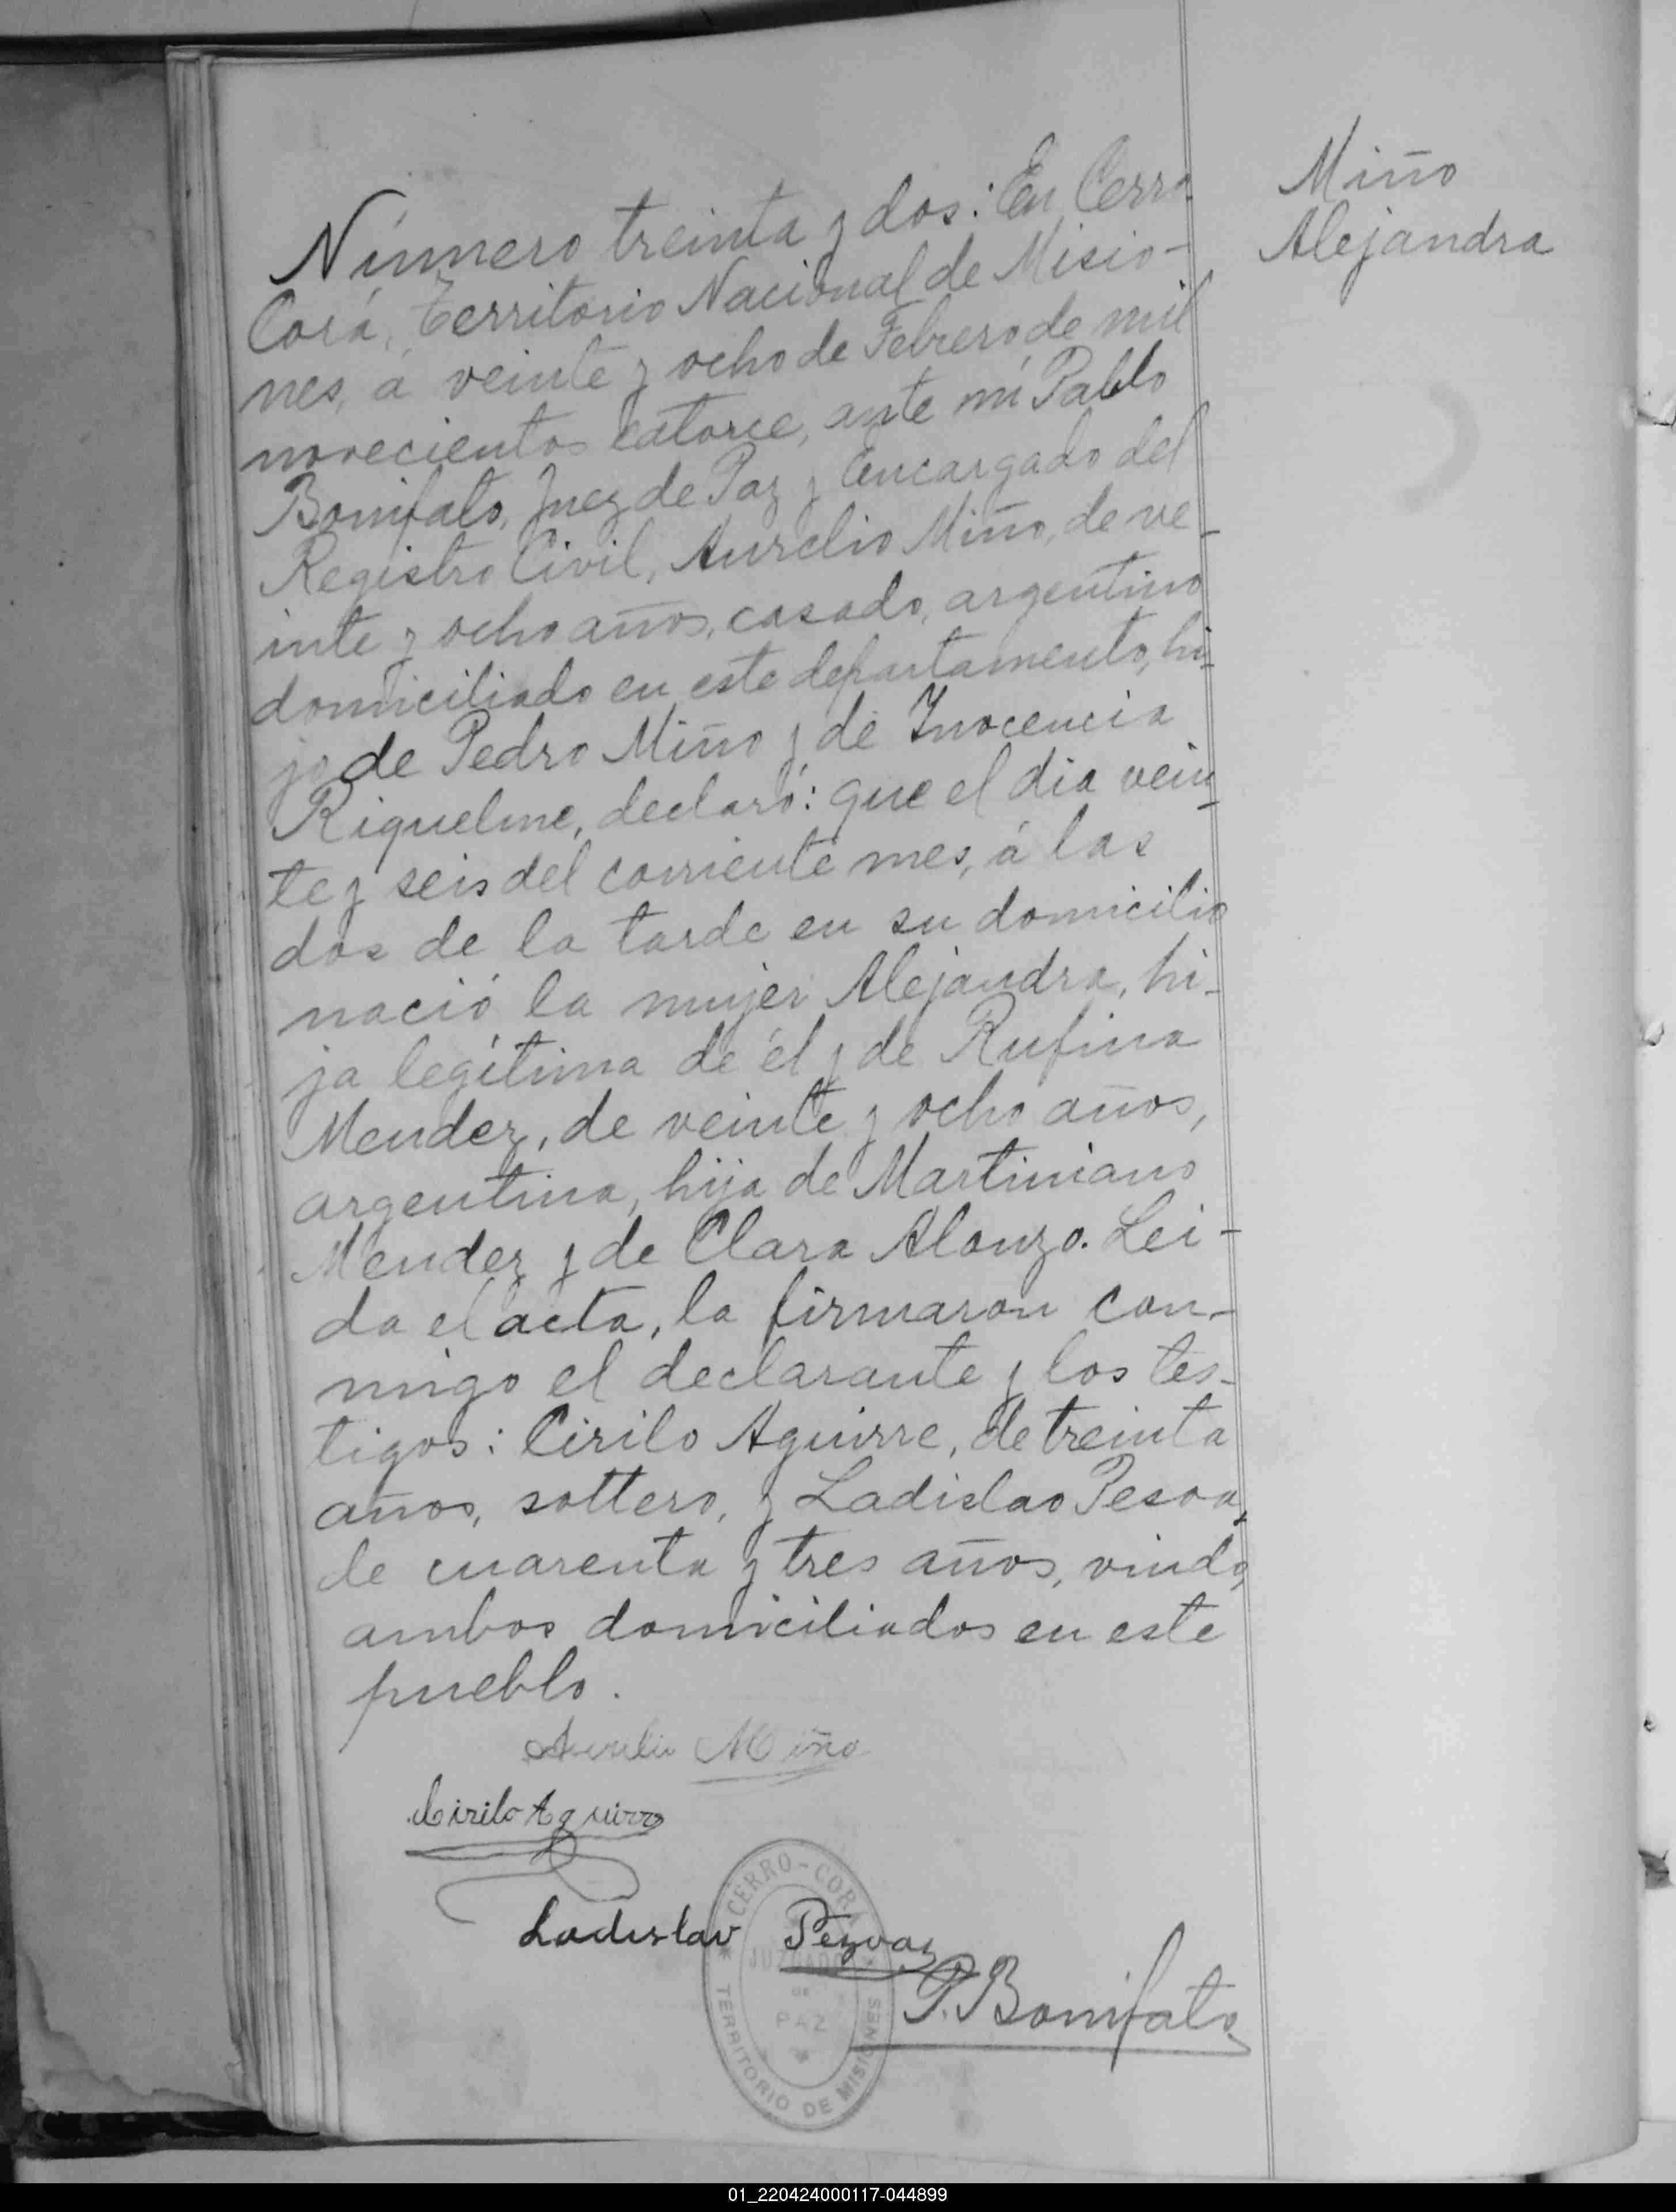 Miño
Alejandra
Número treinta y dos: En Cerro
Corá, Territorio Nacional de Misio-
nes, á veinte y ocho de Febrero de mil
novecientos catorce, ante mí Pablo
Bonifato, Juez de Paz y Encargado del
Registro Civil, Aurelio Miño, de ve-
inte y ocho años, casado, argentino
domiciliado en este departamento, hi-
jo de Pedro Miño y de Inocencia
Riquelme, declaró: que el dia vein-
te y seis del corriente mes, á las
dos de la tarde en su domicilio
nació la mujer Alejandra, hi-
ja legítima de él y de Rufina
Mendez, de veinte y ocho años,
argentina, hija de Martiniano
Mendez y de Clara Alonzo. Lei-
da el acta, la firmaron con-
migo el declarante y los tes-
tigos: Cirilo Aguirre, de treinta
años, soltero, y Ladislao Pesoa,
de cuarenta y tres años, viudo,
ambos domiciliados en este
pueblo.
Aurelio Miño
Cirilo Aguirre
Ladislao
P. Bonifato
CERRO-CORÁ
JUZGADO
DE
PAZ
TERRITORIO DE MISIONES
01_220424000117-044899